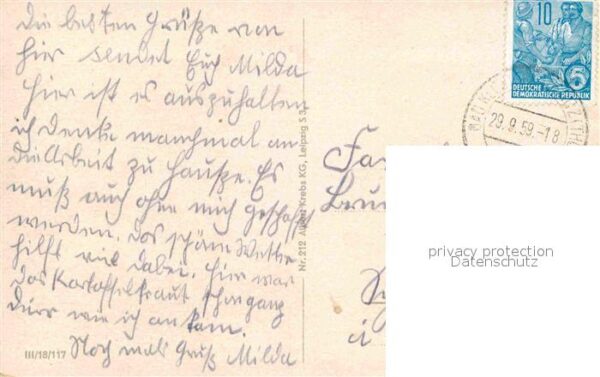 die besten Grüße von
hier sendet Euch Milda
hier ist es auszuhalten
ich denke manchmal an
die Arbeit zu Hauße. Es
muß auch ohne mich geschafft
werden. das schöne Wetter
hilft viel dabei. hier war
das Kartoffelkraut schon ganz
dürr wie ich an kam.
Noch mals Gruß Milda
III/18/117
Nr. 212 Krebs KG, Leipzig S 3
10
5
DEUTSCHE
DEMOKRATISCHE REPUBLIK
29.9.59.-18
Fa
privacy protection
Datenschutz